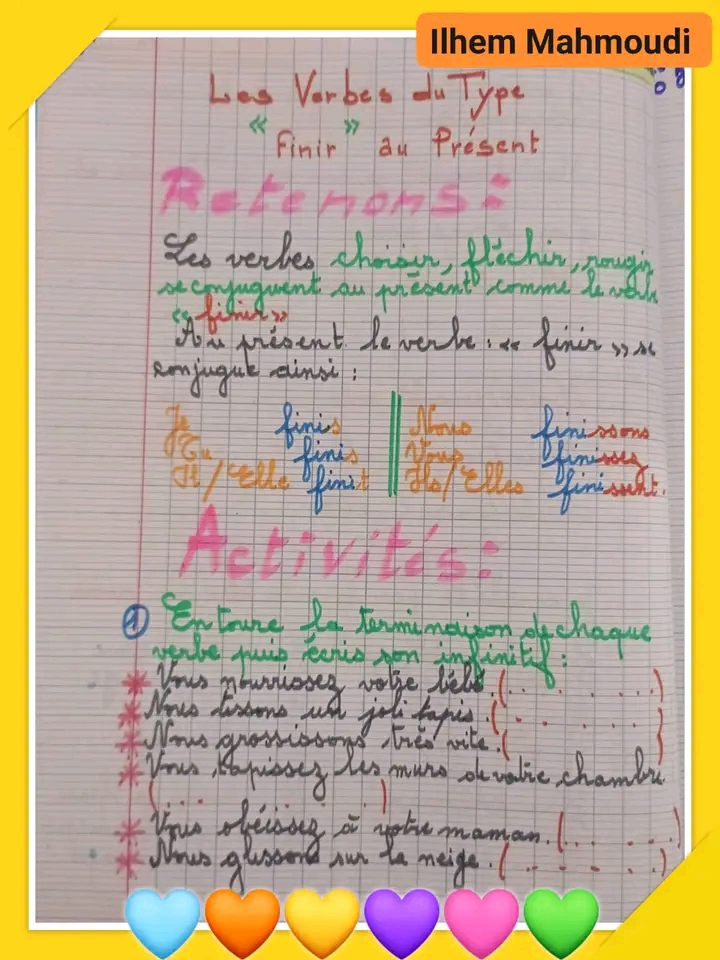 Ilhem Mahmoudi
Les Verbes du Type
« Finir » au Présent
Retenons :
Les verbes choisir, fléchir, rougir
se conjuguent au présent comme le verbe
« finir »
Au présent le verbe : « finir » se
conjugue ainsi :
Je finis Nous finissons
Tu finis Vous finissez
Il/Elle finit Ils/Elles finissent.
Activités :
1 Entoure la terminaison de chaque
verbe puis écris son infinitif :
* Vous nourrissez votre bébé. (. . . . . .)
* Nous tissons un joli tapis. (. . . . .)
* Nous grossissons très vite. ( )
* Vous tapissez les murs de votre chambre
(. . . . )
* Vous obéissez à votre maman. (. . . . .)
* Nous glissons sur la neige. (. . . . . .)